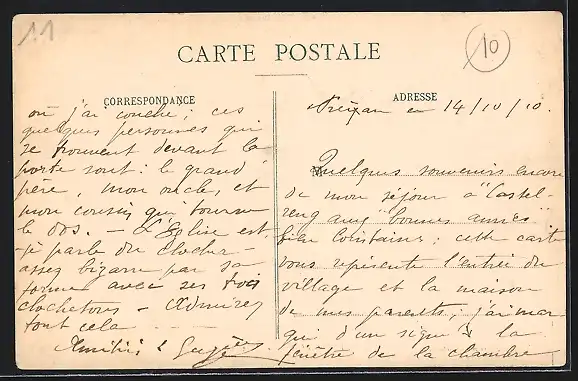 11
10
CARTE POSTALE
CORRESPONDANCE
ADRESSE
en 14/10/10.
Quelques souvenirs encore
de mon séjour à "Castel-
reng aux "bonnes années"
bien lointaines; cette carte
vous représente l'entrée du
village et la maison
de mes parents, j'ai mar
qui d'un signe la
fenêtre de la chambre
où j'ai couché; ces
quelques personnes qui
se trouvent devant la
porte sont: le grand
père, mon oncle, et
mon cousin qui tourne
le dos. - L'Eglise est
- je parle du clocher
assez bizarre par sa
forme avec ses trois
clochetons - Admirez
tout cela -
Amitiés